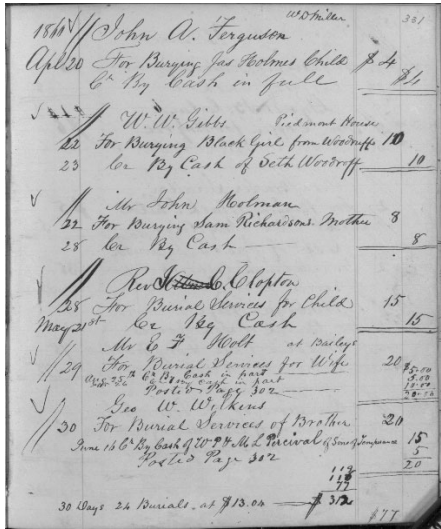 W D Miller 331
1860 John A. Ferguson
Apl 20 For Burying Jas Holmes Child $ 4
Cr By Cash in full $4
W. W. Gibbs Piedmont House
22 For Burying Black Girl from Woodruffs 10
23 Cr By Cash of Seth Woodroff 10
Mr John Holman
22 For Burying Sam Richardsons Mother 8
28 Cr By Cash 8
Rev C. Clopton
28 For Burial Services for Child 15
May 21st Cr By Cash 15
Mr C F Holt at Baileys
29 For Burial Services for Wife 20
Cr By Cash in part 5.00
Cr By Cash in part
Posted Page 302
Geo W. Wilkins
30 For Burial Services of Brother 20
June 16 Cr By Cash of W P H M L Percival of Sons of Temperance 15
5
Posted Page 302 20
77
30 Days 24 Burials at $13.04 $ 312
$77